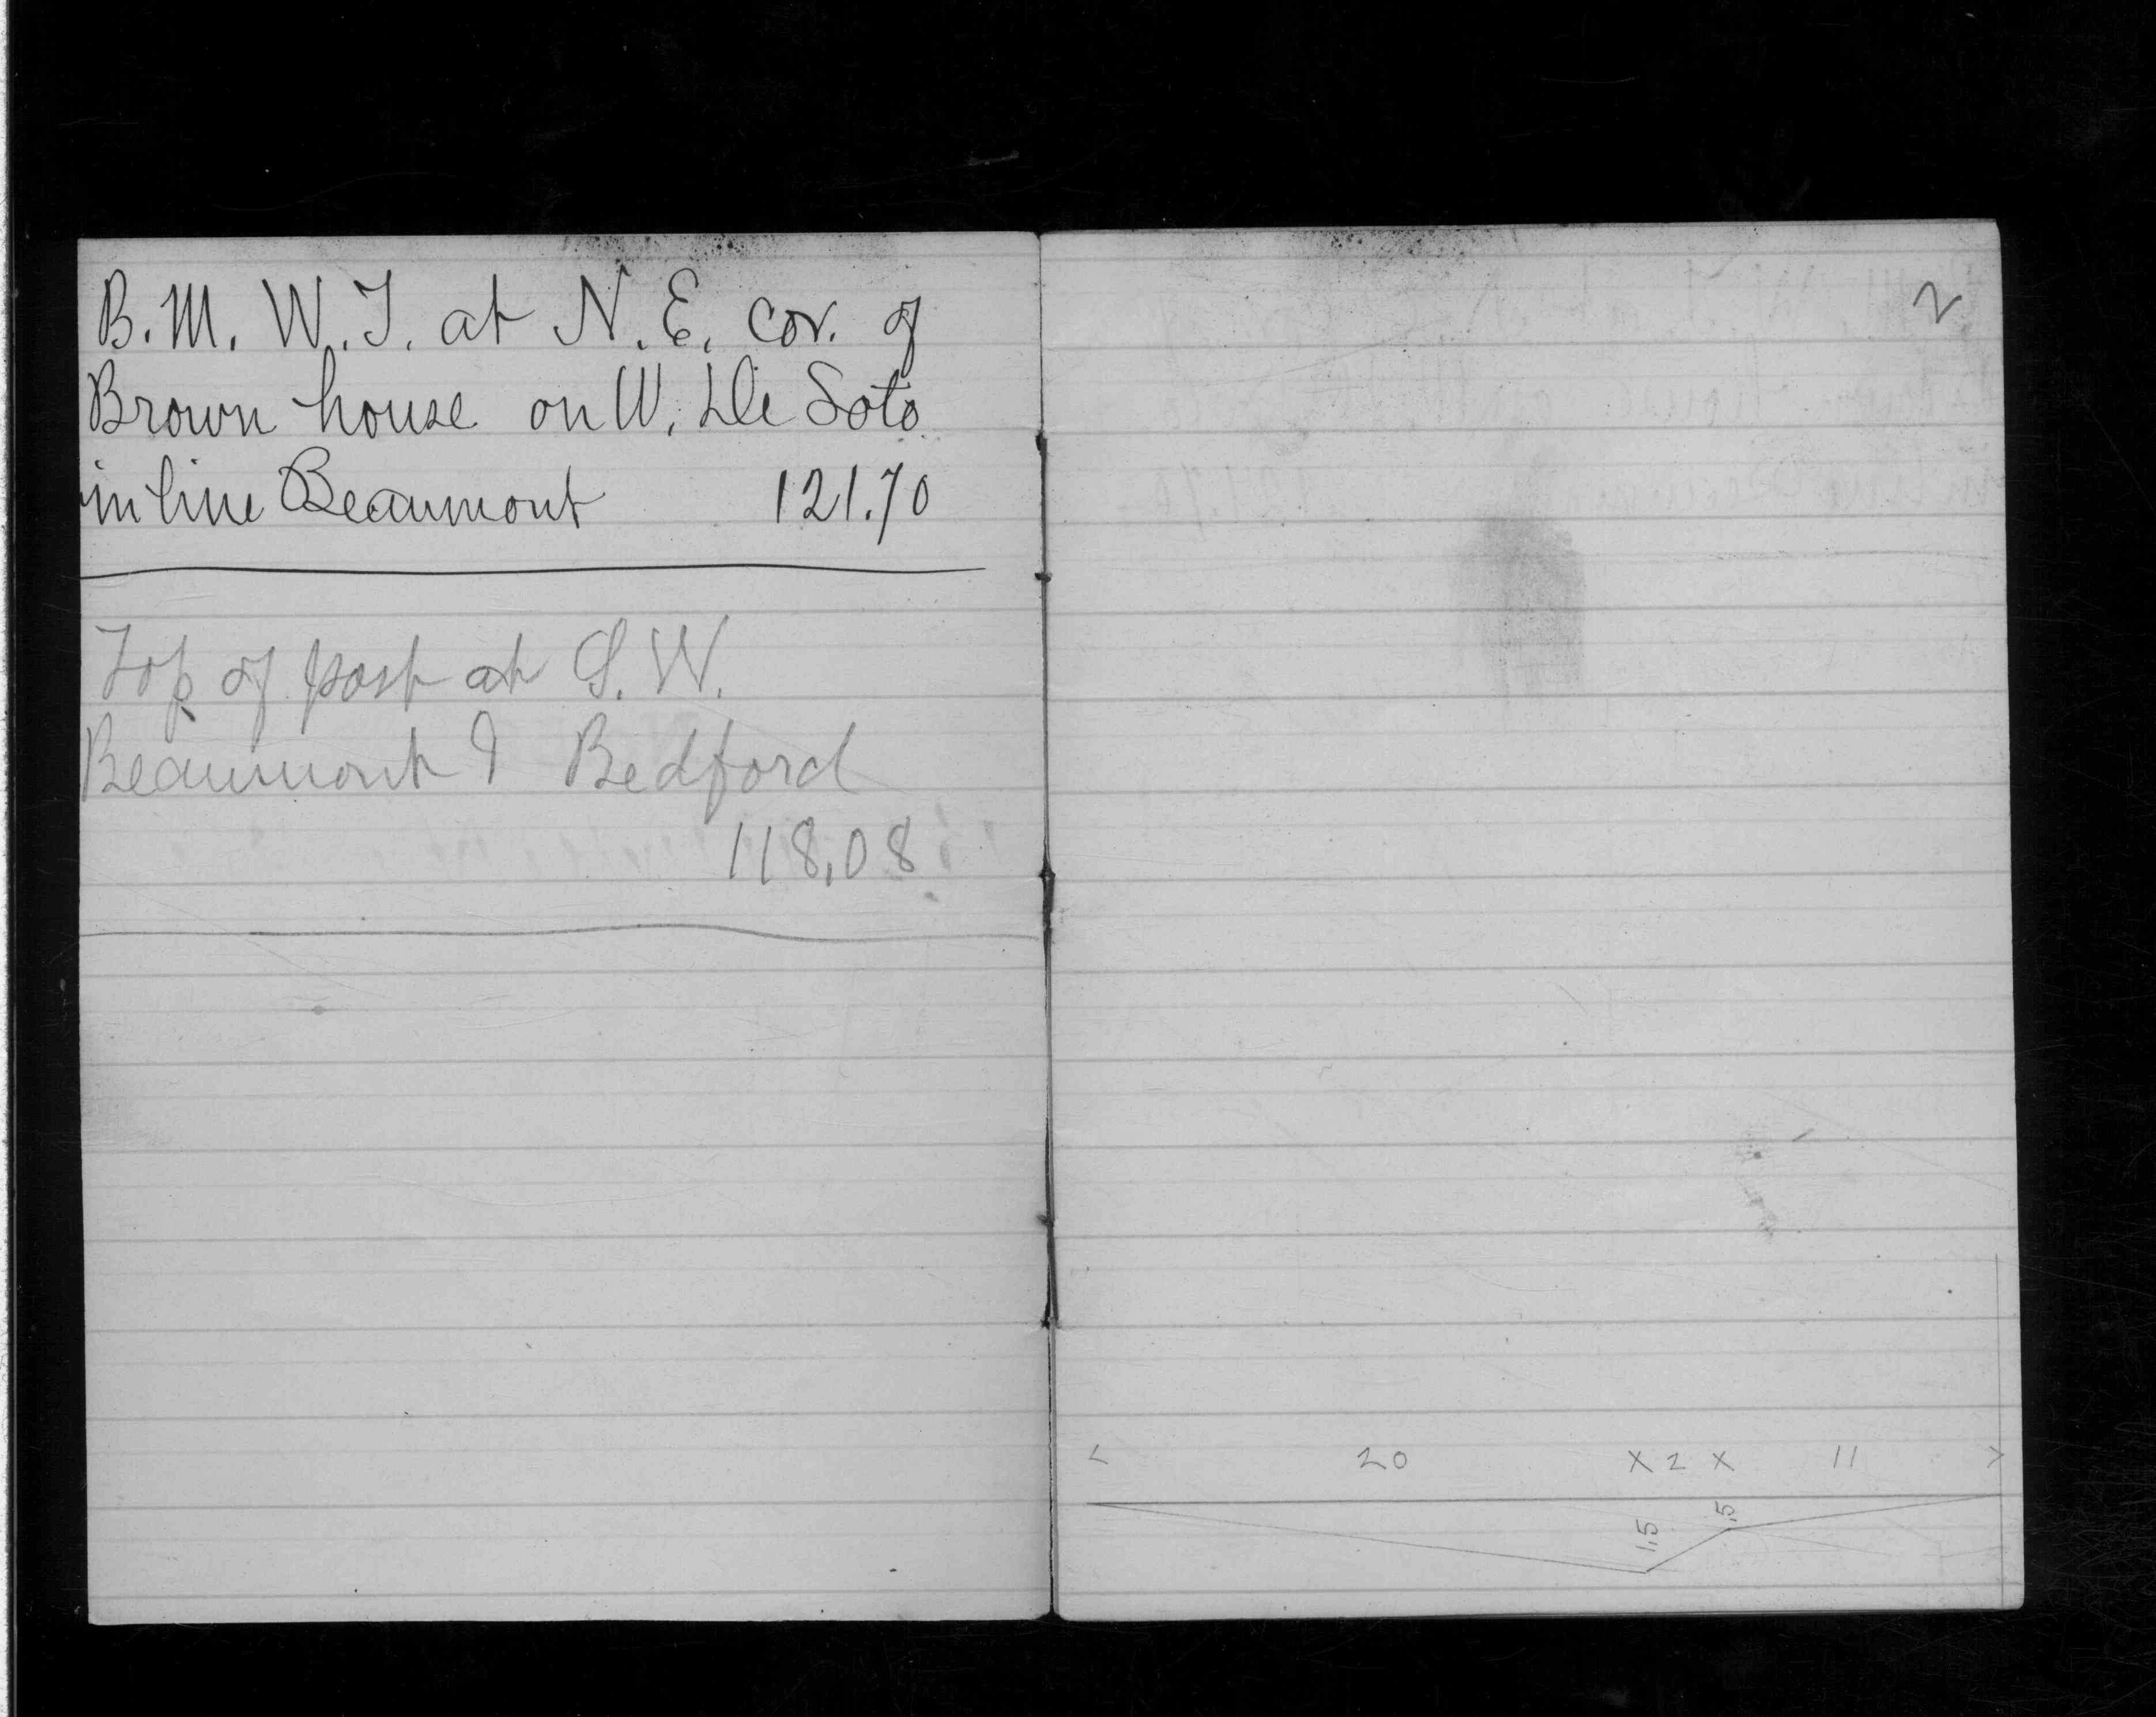 B. M. W. T. at N. E. cor. of
Brown house on W. De Soto
in line Beaumont 121.70
Top of post at S. W.
Beaumont & Bedford
118.08
2
< 20 x 2 x 11 >
1.5 .5